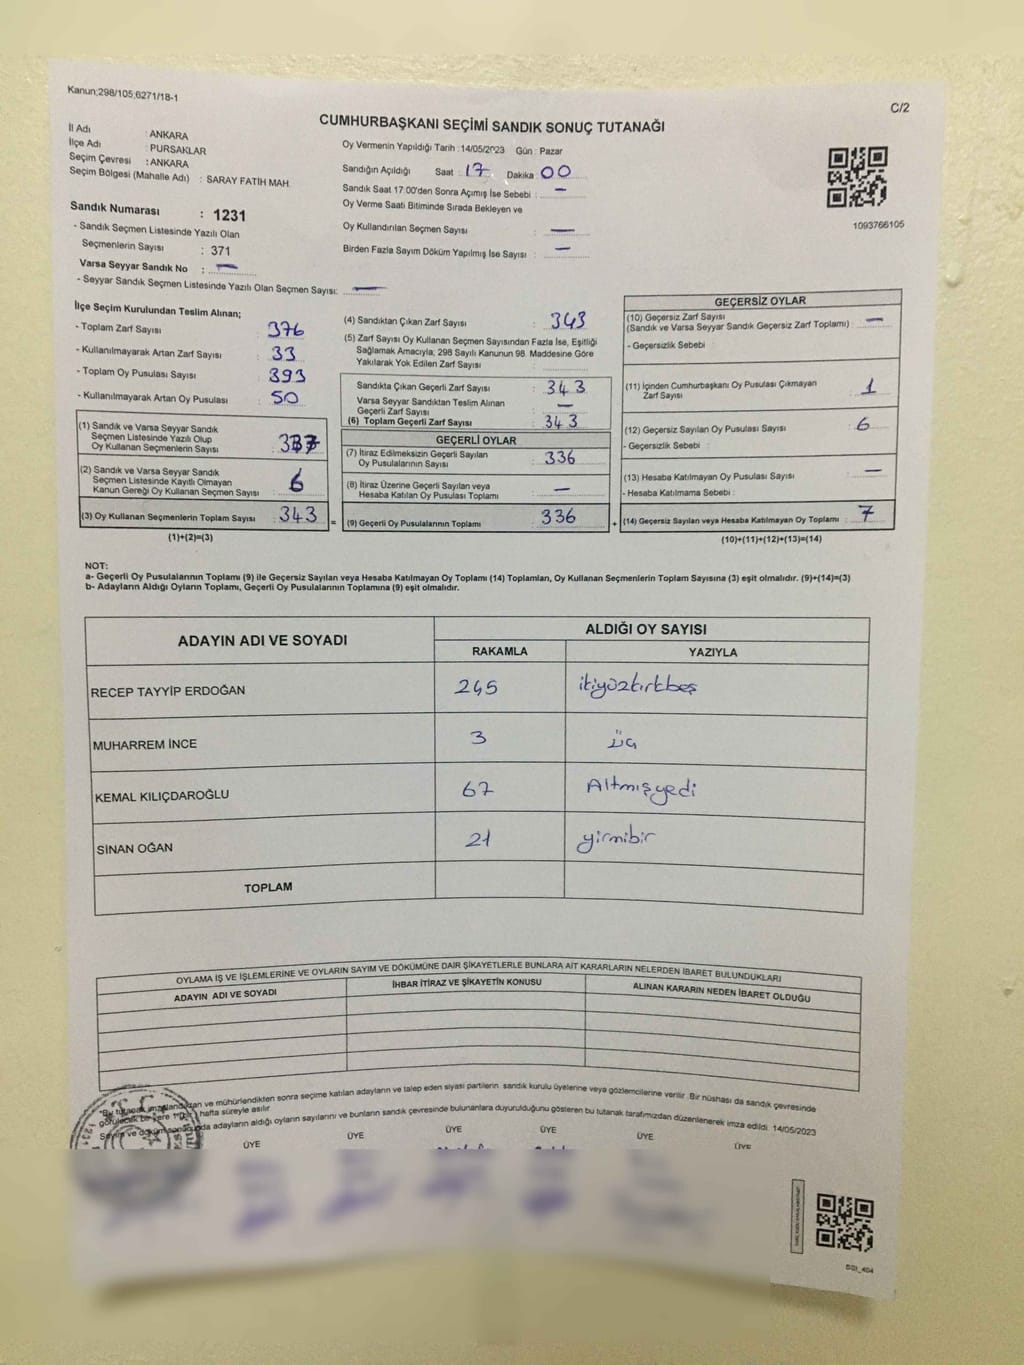 Kanun;298/105;6271/18-1
C/2
CUMHURBAŞKANI SEÇİMİ SANDIK SONUÇ TUTANAĞI
İl Adı : ANKARA
İlçe Adı : PURSAKLAR
Seçim Çevresi : ANKARA
Seçim Bölgesi (Mahalle Adı) : SARAY FATİH MAH.
Oy Vermenin Yapıldığı Tarih : 14/05/2023 Gün : Pazar
Sandığın Açıldığı Saat : 17 Dakika : 00
Sandık Saat 17:00'den Sonra Açımış İse Sebebi : —
Oy Verme Saati Bitiminde Sırada Bekleyen ve
Oy Kullandırılan Seçmen Sayısı —
Birden Fazla Sayım Döküm Yapılmış İse Sayısı : —
1093766105
Sandık Numarası : 1231
- Sandık Seçmen Listesinde Yazılı Olan
Seçmenlerin Sayısı : 371
Varsa Seyyar Sandık No : —
- Seyyar Sandık Seçmen Listesinde Yazılı Olan Seçmen Sayısı: —
İlçe Seçim Kurulundan Teslim Alınan;
- Toplam Zarf Sayısı : 376
- Kullanılmayarak Artan Zarf Sayısı : 33
- Toplam Oy Pusulası Sayısı : 393
- Kullanılmayarak Artan Oy Pusulası : 50
(1) Sandık ve Varsa Seyyar Sandık
Seçmen Listesinde Yazılı Olup
Oy Kullanan Seçmenlerin Sayısı : 337
(2) Sandık ve Varsa Seyyar Sandık
Seçmen Listesinde Kayıtlı Olmayan
Kanun Gereği Oy Kullanan Seçmen Sayısı : 6
(3) Oy Kullanan Seçmenlerin Toplam Sayısı : 343
(1)+(2)=(3)
(4) Sandıktan Çıkan Zarf Sayısı : 343
(5) Zarf Sayısı Oy Kullanan Seçmen Sayısından Fazla İse, Eşitliği
Sağlamak Amacıyla; 298 Sayılı Kanunun 98. Maddesine Göre
Yakılarak Yok Edilen Zarf Sayısı :
Sandıkta Çıkan Geçerli Zarf Sayısı : 343
Varsa Seyyar Sandıktan Teslim Alınan
Geçerli Zarf Sayısı : —
(6) Toplam Geçerli Zarf Sayısı : 343
GEÇERLİ OYLAR
(7) İtiraz Edilmeksizin Geçerli Sayılan
Oy Pusulalarının Sayısı : 336
(8) İtiraz Üzerine Geçerli Sayılan veya
Hesaba Katılan Oy Pusulası Toplamı : —
= (9) Geçerli Oy Pusulalarının Toplamı : 336 +
GEÇERSİZ OYLAR
(10) Geçersiz Zarf Sayısı
(Sandık ve Varsa Seyyar Sandık Geçersiz Zarf Toplamı) : —
- Geçersizlik Sebebi :
(11) İçinden Cumhurbaşkanı Oy Pusulası Çıkmayan
Zarf Sayısı : 1
(12) Geçersiz Sayılan Oy Pusulası Sayısı : 6
- Geçersizlik Sebebi :
(13) Hesaba Katılmayan Oy Pusulası Sayısı : —
- Hesaba Katılmama Sebebi :
(14) Geçersiz Sayılan veya Hesaba Katılmayan Oy Toplamı : 7
(10)+(11)+(12)+(13)=(14)
NOT:
a- Geçerli Oy Pusulalarının Toplamı (9) ile Geçersiz Sayılan veya Hesaba Katılmayan Oy Toplamı (14) Toplamları, Oy Kullanan Seçmenlerin Toplam Sayısına (3) eşit olmalıdır. (9)+(14)=(3)
b- Adayların Aldığı Oyların Toplamı, Geçerli Oy Pusulalarının Toplamına (9) eşit olmalıdır.
ADAYIN ADI VE SOYADI
ALDIĞI OY SAYISI
RAKAMLA YAZIYLA
RECEP TAYYİP ERDOĞAN 245 ikiyüzkırkbeş
MUHARREM İNCE 3 üç
KEMAL KILIÇDAROĞLU 67 Altmışyedi
SİNAN OĞAN 21 yirmibir
TOPLAM
OYLAMA İŞ VE İŞLEMLERİNE VE OYLARIN SAYIM VE DÖKÜMÜNE DAİR ŞİKAYETLERLE BUNLARA AİT KARARLARIN NELERDEN İBARET BULUNDUKLARI
ADAYIN ADI VE SOYADI İHBAR İTİRAZ VE ŞİKAYETİN KONUSU ALINAN KARARIN NEDEN İBARET OLDUĞU
"Bu tutanak imzalandıktan ve mühürlendikten sonra seçime katılan adayların ve talep eden siyasi partilerin sandık kurulu üyelerine veya gözlemcilerine verilir. Bir nüshası da sandık çevresinde
görülecek bir yere hafta süreyle asılır
Sayım ve döküm sonucunda adayların aldığı oyların sayılarını ve bunların sandık çevresinde bulunanlara duyurulduğunu gösteren bu tutanak tarafımızdan düzenlenerek imza edildi. 14/05/2023
ÜYE ÜYE ÜYE ÜYE ÜYE ÜYE
T.C.
1231